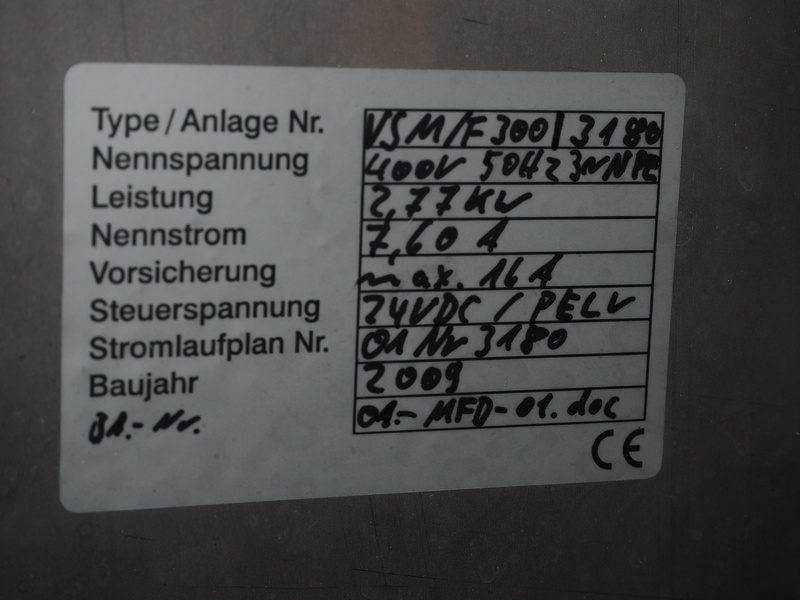 Type / Anlage Nr. VSM/F300/3180
Nennspannung 400V 50Hz 3~NPE
Leistung 2,77 KV
Nennstrom 7,60 A
Vorsicherung max. 16A
Steuerspannung 24VDC / PELV
Stromlaufplan Nr. 01 Nr 3180
Baujahr 2009
BA.-Nr. 01.-MFD-01.doc
CE